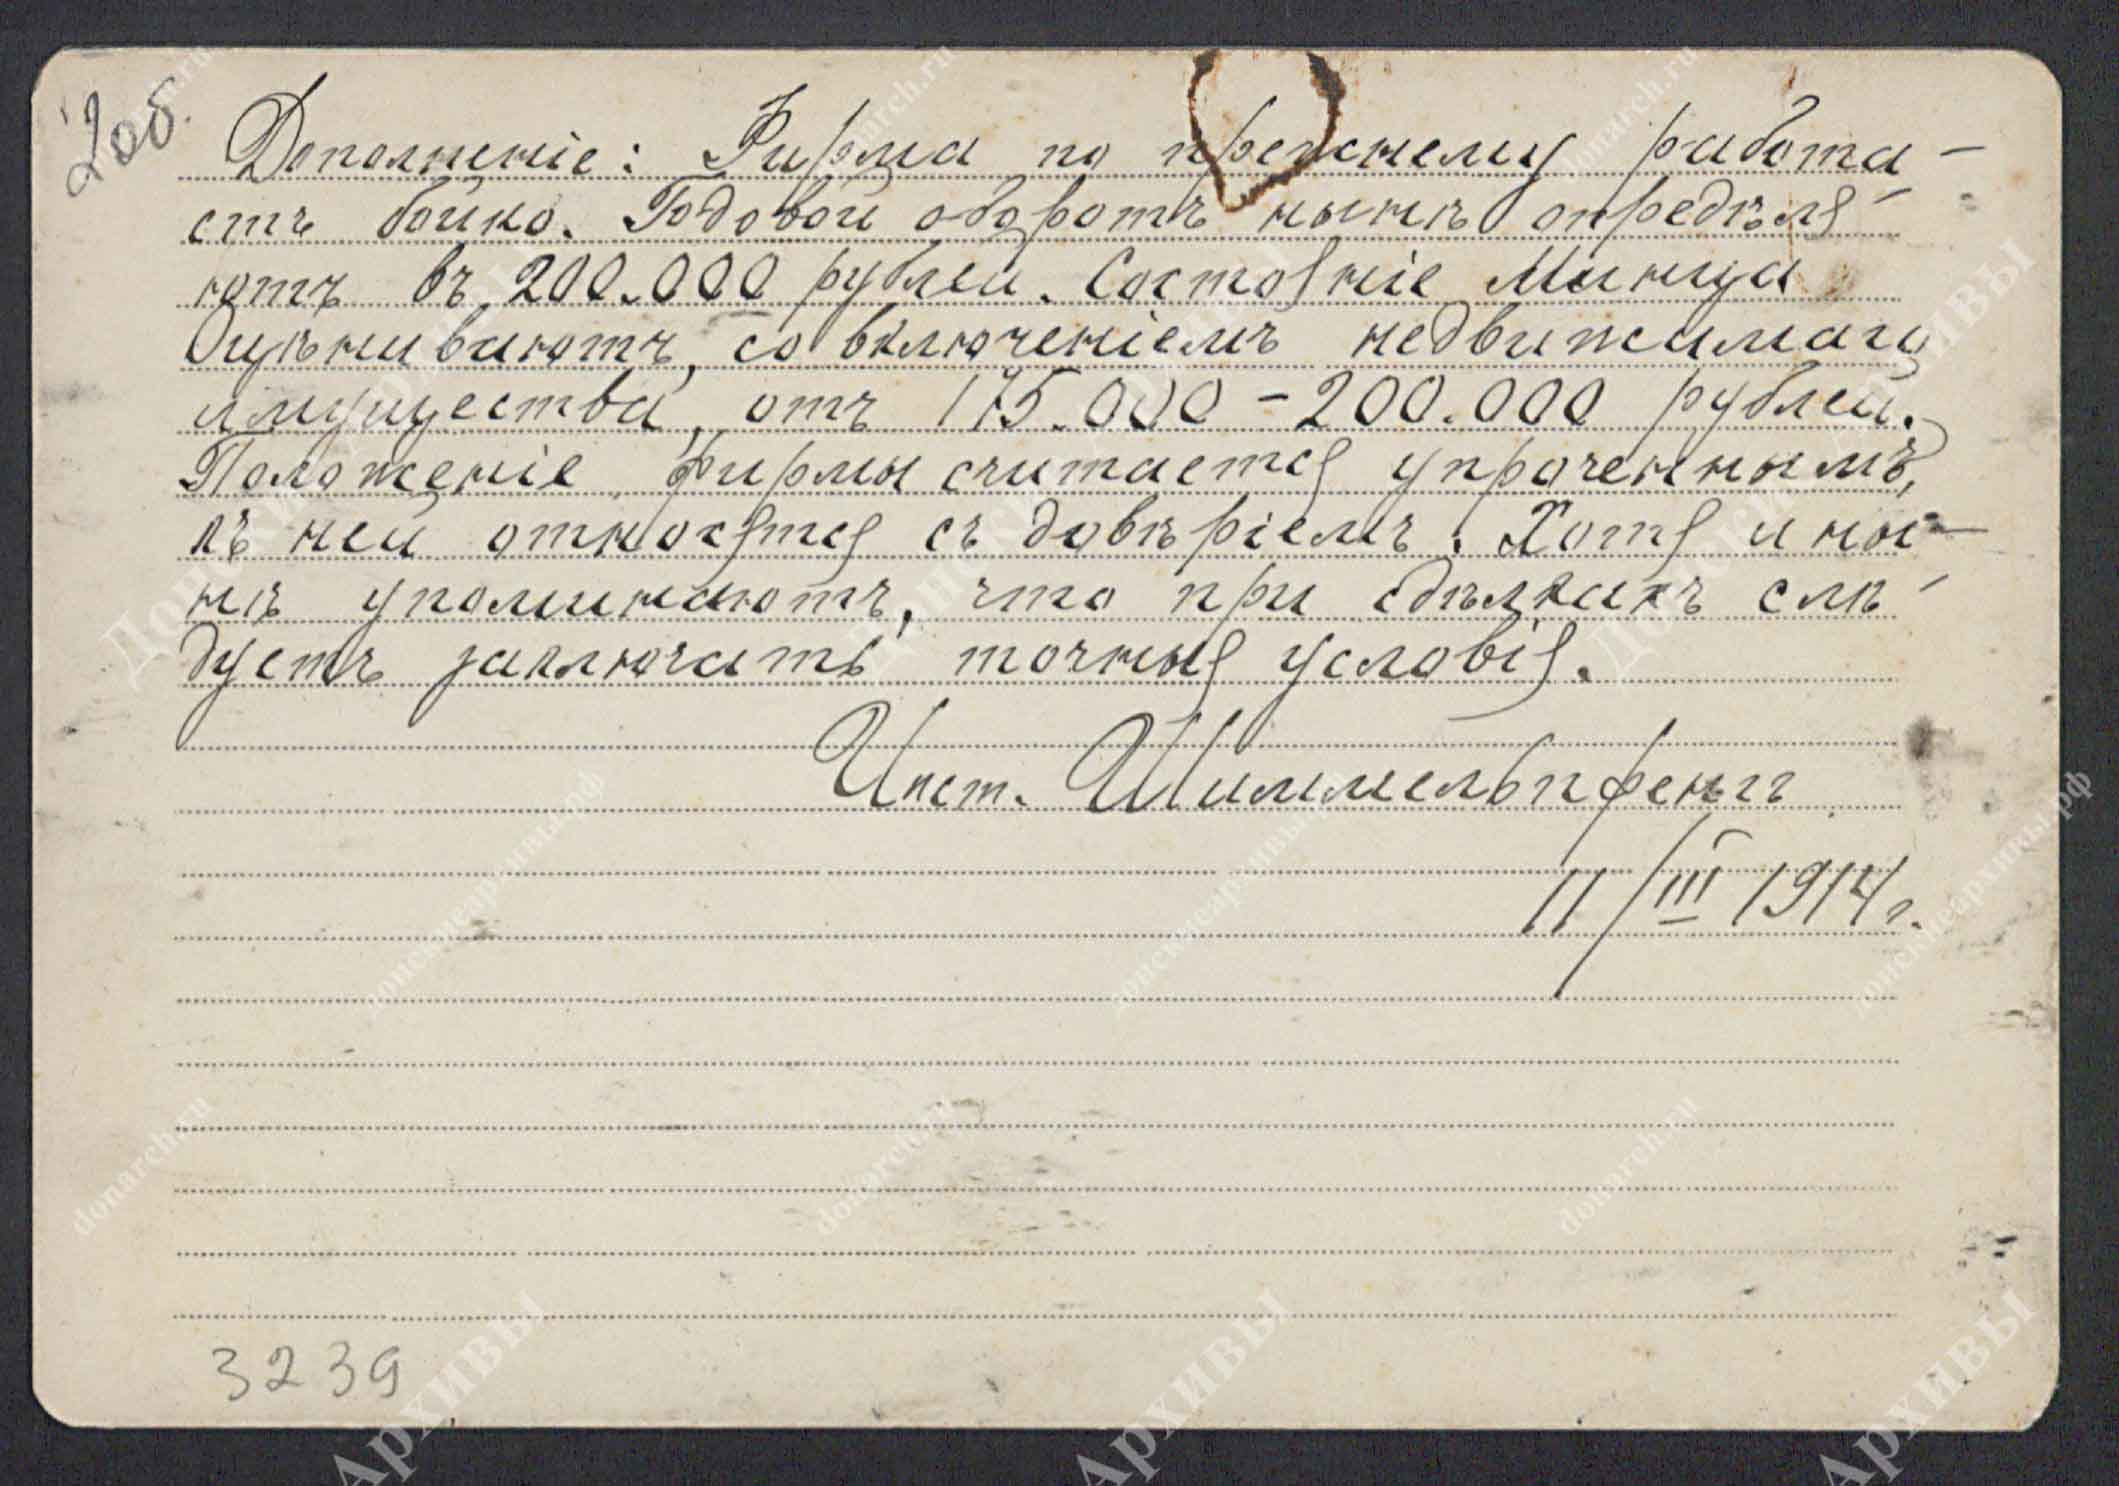 2об.
Дополненіе: Фирма по прежнему работа-
етъ бойко. Годовой оборотъ нынѣ опредѣля-
ютъ въ 200.000 рублей. Состояніе Минца
оцѣниваютъ, со включеніемъ недвижимаго
имущества, отъ 175.000 - 200.000 рублей.
Положеніе фирмы считается упроченнымъ,
къ ней относятся съ довѣріемъ. Хотя и ны-
нѣ упоминаютъ, что при сдѣлкахъ слѣ-
дуетъ заключать точныя условія.
Инст. Шиммельпфенгъ
11/III 1914 г.
3239